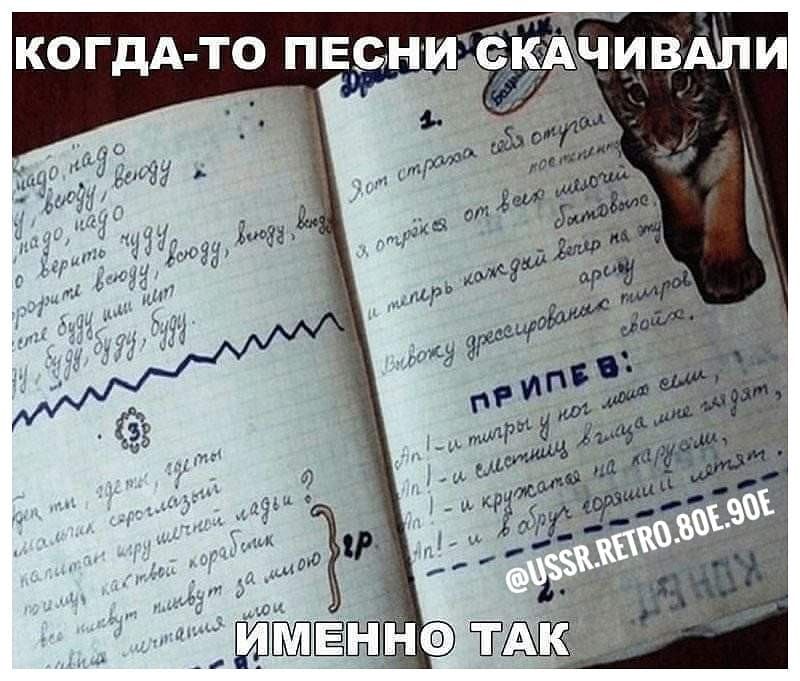 КОГДА-ТО ПЕСНИ СКАЧИВАЛИ
надо, надо
, всюду, всюду
надо, надо
верить чуду
всюду, всюду, всюду,
буду или нет
буду, буду, буду.
3
где ты, где ты, где ты
мальчик сероглазый
капитан игрушечной ладьи?
почему, как твой кораблик
все плывут плывут за мною
мечтания мои
гр.
1.
Я от страха себя отучал
постепенно,
я отрёкся от всех мелочей
бытовых,
и теперь каждый вечер на эту
арену
Вывожу дрессированных тигров
своих.
ПРИПЕВ:
Ап! - и тигры у ног моих сели,
Ап! - и с лестниц в глаза мне глядят,
Ап! - и кружатся на карусели,
Ап! - и в обруч горящий летят.
@USSR.RETRO.80E.90E
2.
КОНЕЦ
ИМЕННО ТАК